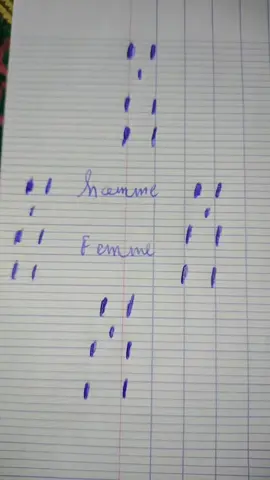 homme
Femme